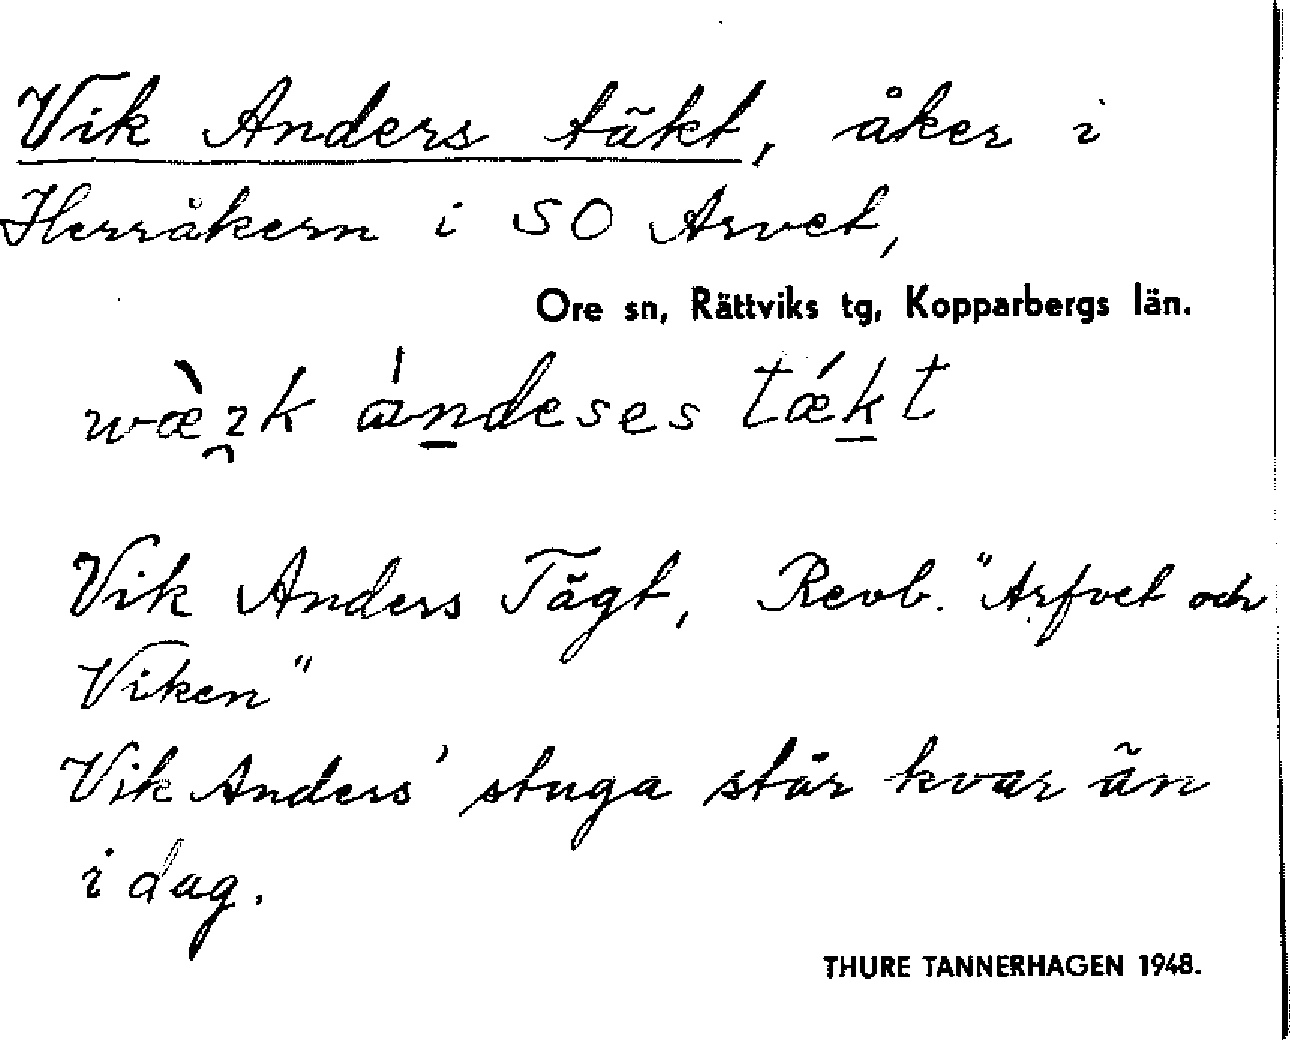 Vik Anders täkt, åker i
Herråkern i SO Arvet,
Ore sn, Rättviks tg, Kopparbergs län.
wæ̀ı̯k ándeses tǽkt
Vik Anders Tägt, Revb. "Arfvet och
Viken"
Vik Anders' stuga står kvar än
i dag.
THURE TANNERHAGEN 1948.